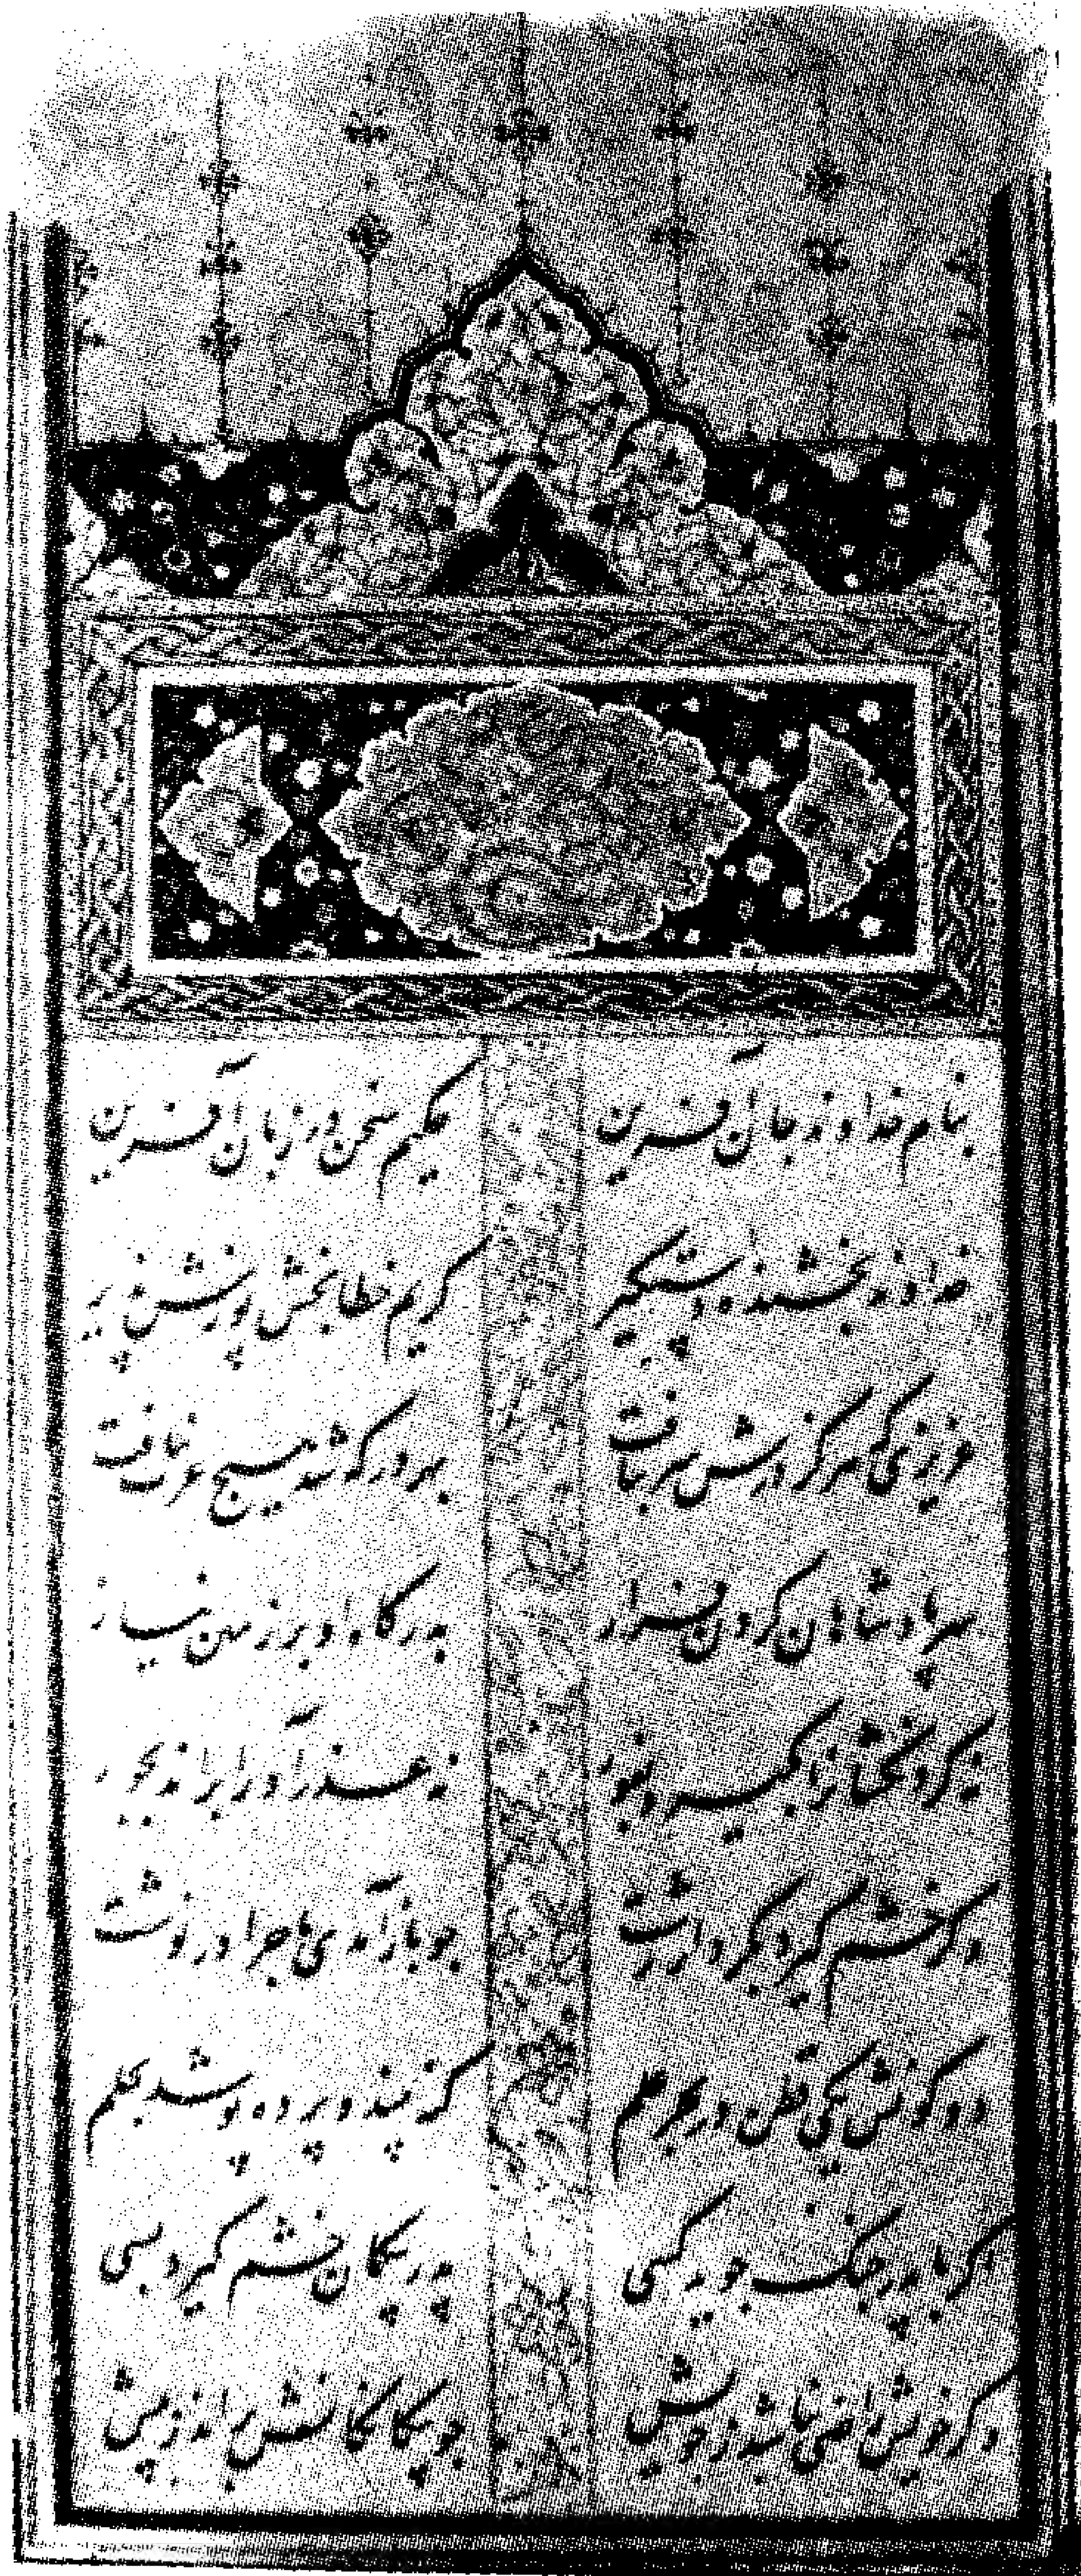 بنام خداوند جان آفرین حکیم سخن در زبان آفرین
خداوند بخشنده و دستکیر کریم خطا بخش پوزش پذیر
عزیزی که هر کز درش سر بتافت بهر در که شد هیچ عزت نیافت
سر پادشاهان کردن فراز بدرکاه او بر زمین نیاز
نه کردنکشانرا بکیرد بفور نه عذر آورانرا براند بجور
وکر خشم کیرد بکردار زشت چو باز آمدی ماجرا در نوشت
دو کونش یکی قطره در بحر علم کنه بیند و پرده پوشد بحلم
اکر با پدر جنک جوید کسی پدر بیکمان خشم کیرد بسی
وکر خویش راضی نباشد ز خویش چو بیکانکانش براند ز پیش